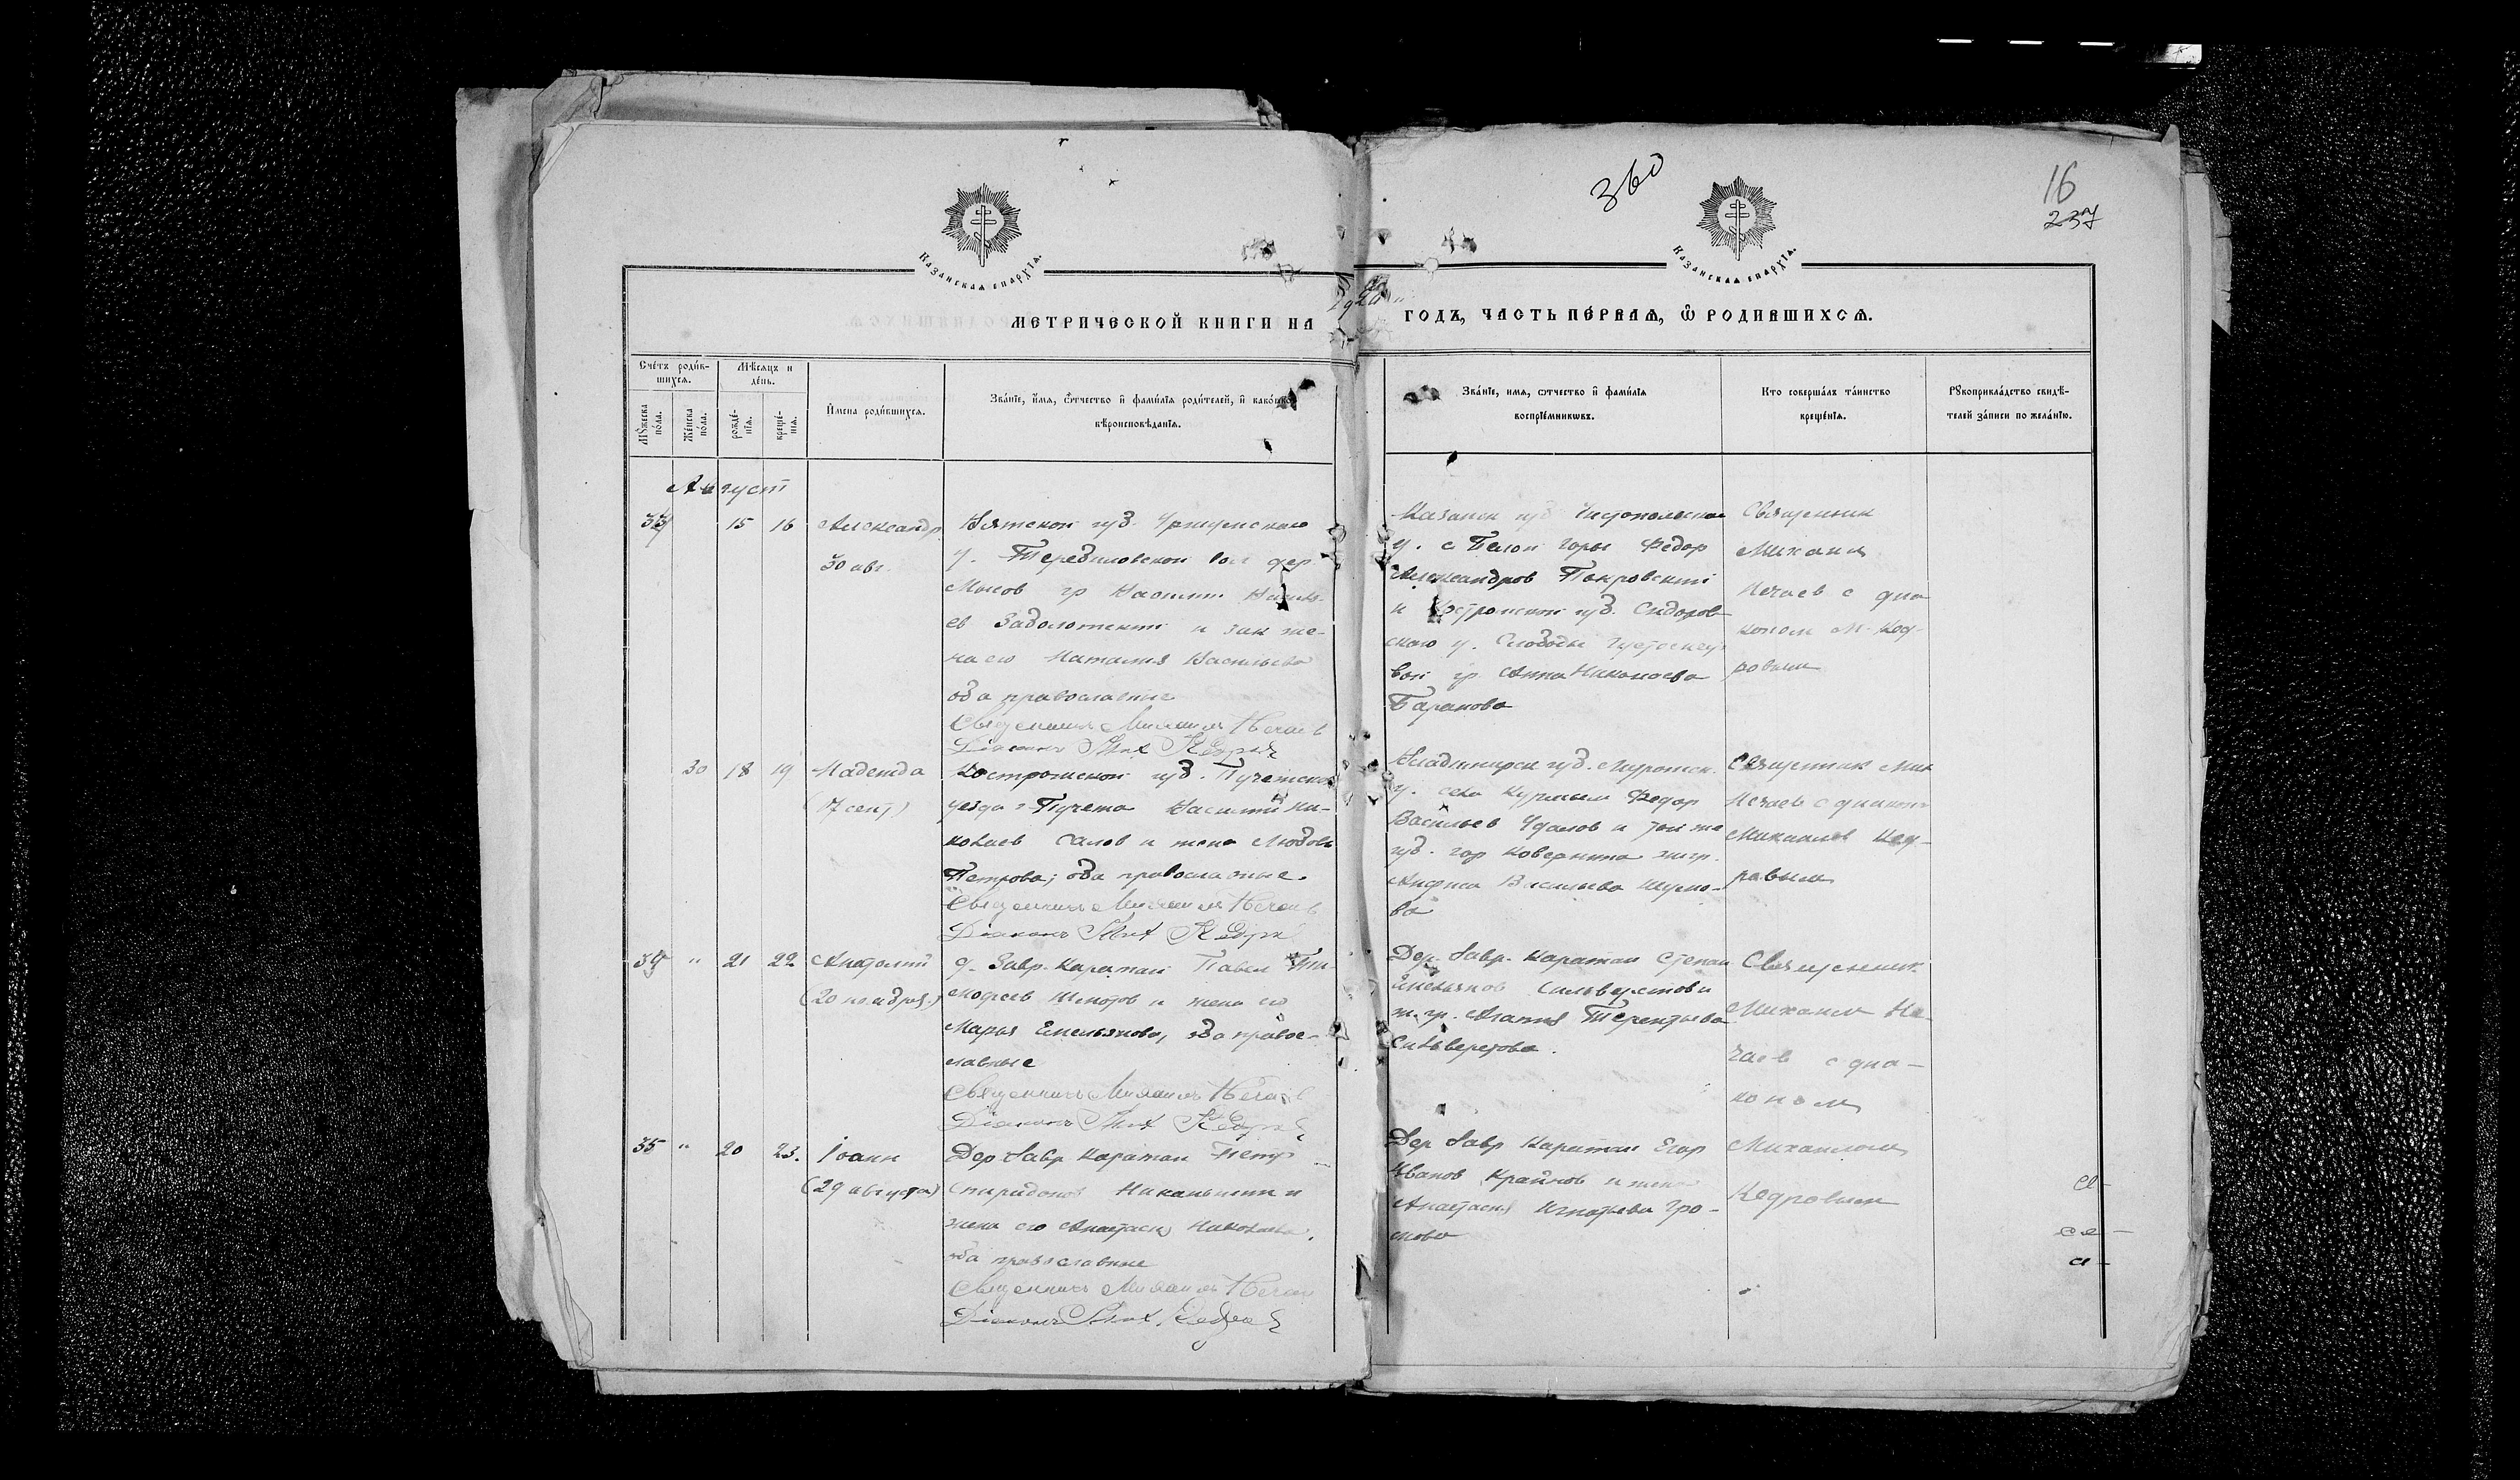 360
16
237
Казанская епархїѧ.
Казанская епархїѧ.
МЕТРИЧЕСКОЙ КНИГИ НА
1920
ГОДЪ, ЧАСТЬ ПЕ́РВАѦ, Ѽ РОДИВШИХСѦ.
Сче́тъ роди́в-
шихсѧ.
Мѣ́сѧцъ и
де́нь.
Мꙋжеска
по́ла.
Же́нска
по́ла.
рожде́-
нїѧ.
креще́-
нїѧ.
И҆мена роди́вшихсѧ.
Зва́нїе, и҆́мѧ, ѻ҆́тчество и҆ фами́лїѧ роди́телей, и҆ како́гѡ
вѣроисповѣ́данїѧ.
Зва́нїе, имѧ, ѻтчество и҆ фами́лїѧ
воспрїе́мникѡвъ.
Кто соверша́лъ та́инство
креще́нїѧ.
Рꙋкоприкла́дство свидѣ́-
телей за́писи по жела́нїю.
Август
33 15 16 Александр
30 авг.
Вятской губ. Уржумского
у. вол дер.
гр Василий
ев Заболотский и зак же-
на его Наталия Васильева
оба православные
Священникъ Михаилъ Нечаев
Дїаконъ Мих Кедров
Казанск губ Чистопольского
у. с Белой горы Федор
Александров Покровский
и Костромской губ. Сидоров-
ского у. Слободы
вой гр Анна Николаева
Баранова
Священник
Михаил
Нечаев с диа
коном М. Кед-
ровым
30 18 19 Надежда
(17 сент)
Костромской губ. Пучежского
уезда г Пучежа Василий Ни-
колаев Салов и жена Любовь
Петрова; оба православные.
Священникъ Михаилъ Нечаев
Дїаконъ Мих Кедров
Владимирск губ. Муромск.
у. села Федор
Васильев Удалов и той же
губ. гор Ковернина
Анфиса Васильева Шумо-
ва
Священник Мих
Нечаев с диаконом
Михаилов Кед-
ровым
34 " 21 22 Анатолий
(20 ноября.)
д. Завр. Каратаи Павел Ти-
мофеев и жена его
Марья Емельянова, оба право-
славные
Священникъ Михаилъ Нечаев
Дїаконъ Мих Кедров
Дер. Завр. Каратаи Степан
Емельянов Сильверстов и
гр. Агапия Терентьева
Сильверстова.
Священник
Михаил Не
чаев с диа-
коном
35 " 20 23. Іоанн
(29 августа)
Дер Завр Каратаи Петр
Спиридонов и
жена его Анастасия Николаева,
оба православные
Священникъ Михаилъ Нечаев
Дїаконъ Мих. Кедров
Дер Завр Каратаи Егор
Иванов Крайнов и жена
Анастасия Игнатьева Гро-
мова
Михаилом
Кедровым